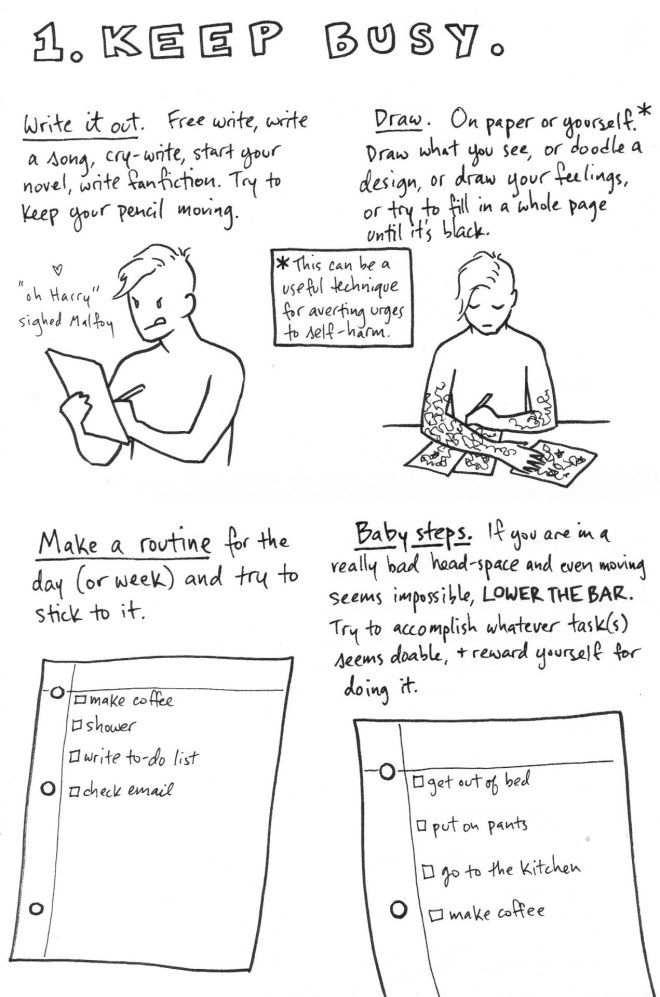 1. KEEP BUSY.
Write it out. Free write, write
a song, cry-write, start your
novel, write fanfiction. Try to
keep your pencil moving.
Draw. On paper or yourself.*
Draw what you see, or doodle a
design, or draw your feelings,
or try to fill in a whole page
until it's black.
"oh Harry"
sighed Malfoy
* This can be a
useful technique
for averting urges
to self-harm.
Make a routine for the
day (or week) and try to
stick to it.
make coffee
shower
write to-do list
check email
Baby steps. If you are in a
really bad head-space and even moving
seems impossible, LOWER THE BAR.
Try to accomplish whatever task(s)
seems doable, + reward yourself for
doing it.
get out of bed
put on pants
go to the kitchen
make coffee